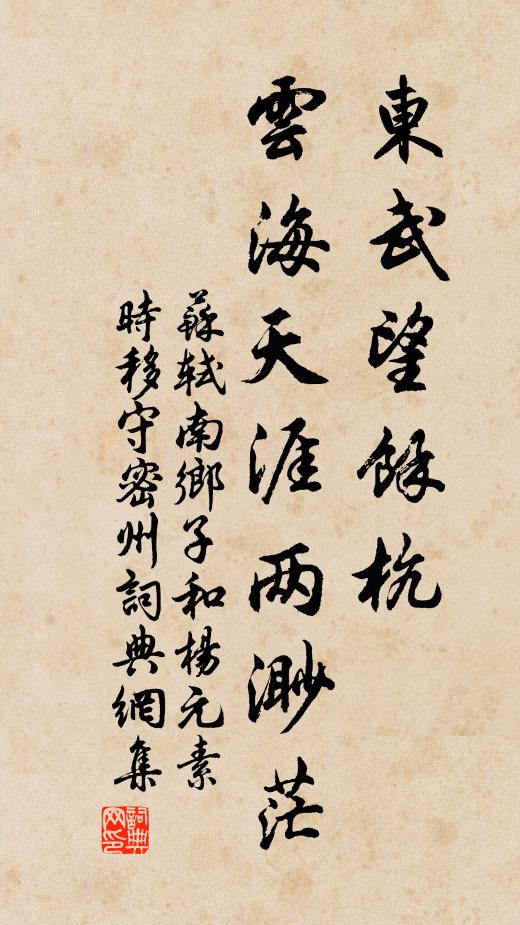 東武望餘杭
雲海天涯两渺茫
蘇軾南鄉子和楊元素
時移守密州詞典網集
詞典
网印